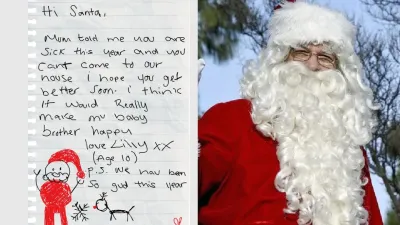 Hi Santa,
Mum told me you are
sick this year and you
cant come to our
house I hope you get
better soon. I think
it would Really
make my baby
brother happy
love Lilly xx
(Age 10)
p.s. We hav ben
so gud this year